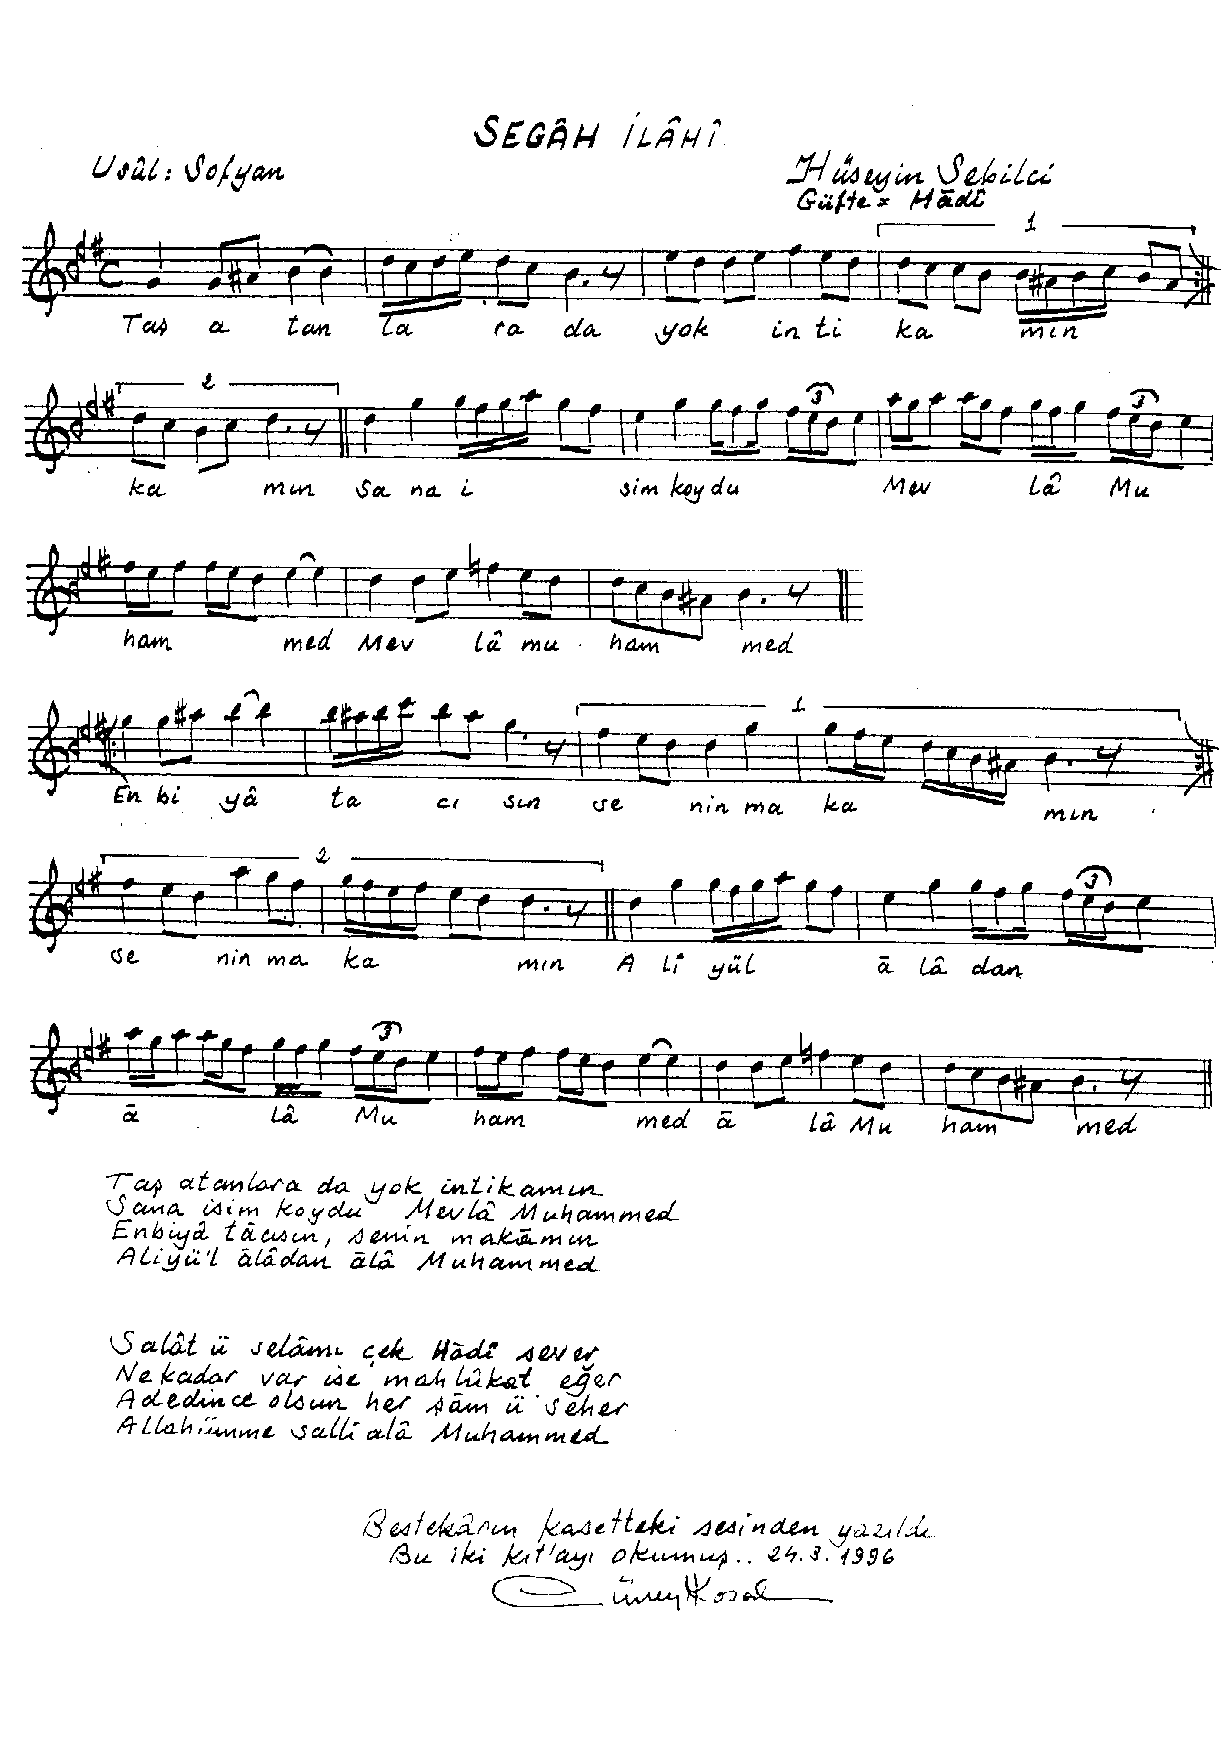 SEGÂH İLÂHÎ
Usûl: Sofyan
Hüseyin Sebilci
Güfte: Hâdî
1
Taş a tan la ra da yok in ti ka mın
2 3 3
ka mın Sa na i sim koy du Mev lâ Mu
ham med Mev lâ mu ham med
1
En bi yâ ta cı sın se nin ma ka mın
2 3
se nin ma ka mın A lî yül ā lâ dan
3
ā lâ Mu ham med ā lâ Mu ham med
Taş atanlara da yok intikamın
Sana isim koydu Mevlâ Muhammed
Enbiyâ tācısın, senin makāmın
Aliyü'l ālâdan ālâ Muhammed
Salât ü selâmı çek Hādî sever
Ne kadar var ise mahlûkat eğer
Adedince olsun her şām ü seher
Allahümme salli alâ Muhammed
Bestekârın kasetteki sesinden yazıldı
Bu iki kıt'ayı okumuş.. 24.3.1996
Cüneyt Kosal